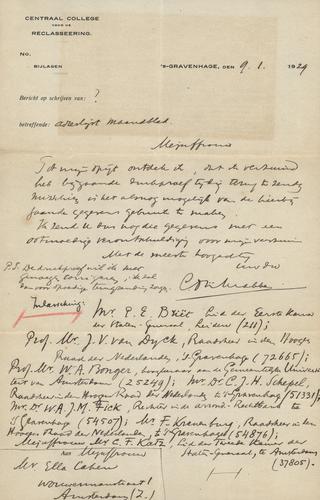 CENTRAAL COLLEGE
VOOR DE
RECLASSEERING.
No.
BIJLAGEN
'S-GRAVENHAGE, DEN 9.1. 1929
Bericht op schrijven van: ?
betreffende: adreslijst Maandblad.
Mejuffrouw
Tot mijn spijt ontdek ik, dat ik verzuimd
heb bijgaande drukproef tijdig terug te zenden
Misschien is het alsnog mogelijk van de hierbij
gaande gegevens gebruik te maken.
Ik zend U dus nog de gegevens met een
ootmoedig verontschuldiging voor mijn verzuim
Met de meeste hoogachting
P.S. De drukproef wil ik zeer
gaarne corrigeeren; ik zal
voor spoedige terugzending zorgen.
Inlassching:
Mr. P. E. Briët, Lid der Eerste Kamer
der Staten-Generaal, Leiden (211);
Prof. Mr. J. V. van Dyck, Raadsheer in den Hoogen
Raad der Nederlanden, 's Gravenhage (72665);
Prof. Mr. W. A. Bonger, hoogleeraar aan de Gemeentelijke Universi-
teit van Amsterdam (25249); Mr. Dr. C. J. H. Schepel,
Raadsheer in den Hoogen Raad der Nederlanden te 's Gravenhage (51331);
Mr. Dr. W. A. J. M. Fick, Rechter in de Arrond. Rechtbank te
's Gravenhage (54507); Mr. F. Kranenburg, Raadsheer in den
Hoogen Raad der Nederlanden, 's Gravenhage (54876);
Mejuffrouw Mr. C. F. Katz, Lid der Tweede Kamer der
Staten-Generaal, te Amsterdam
(37805).
Mejuffrouw
Mr. Ella Cohen
Amsterdam (Z.)